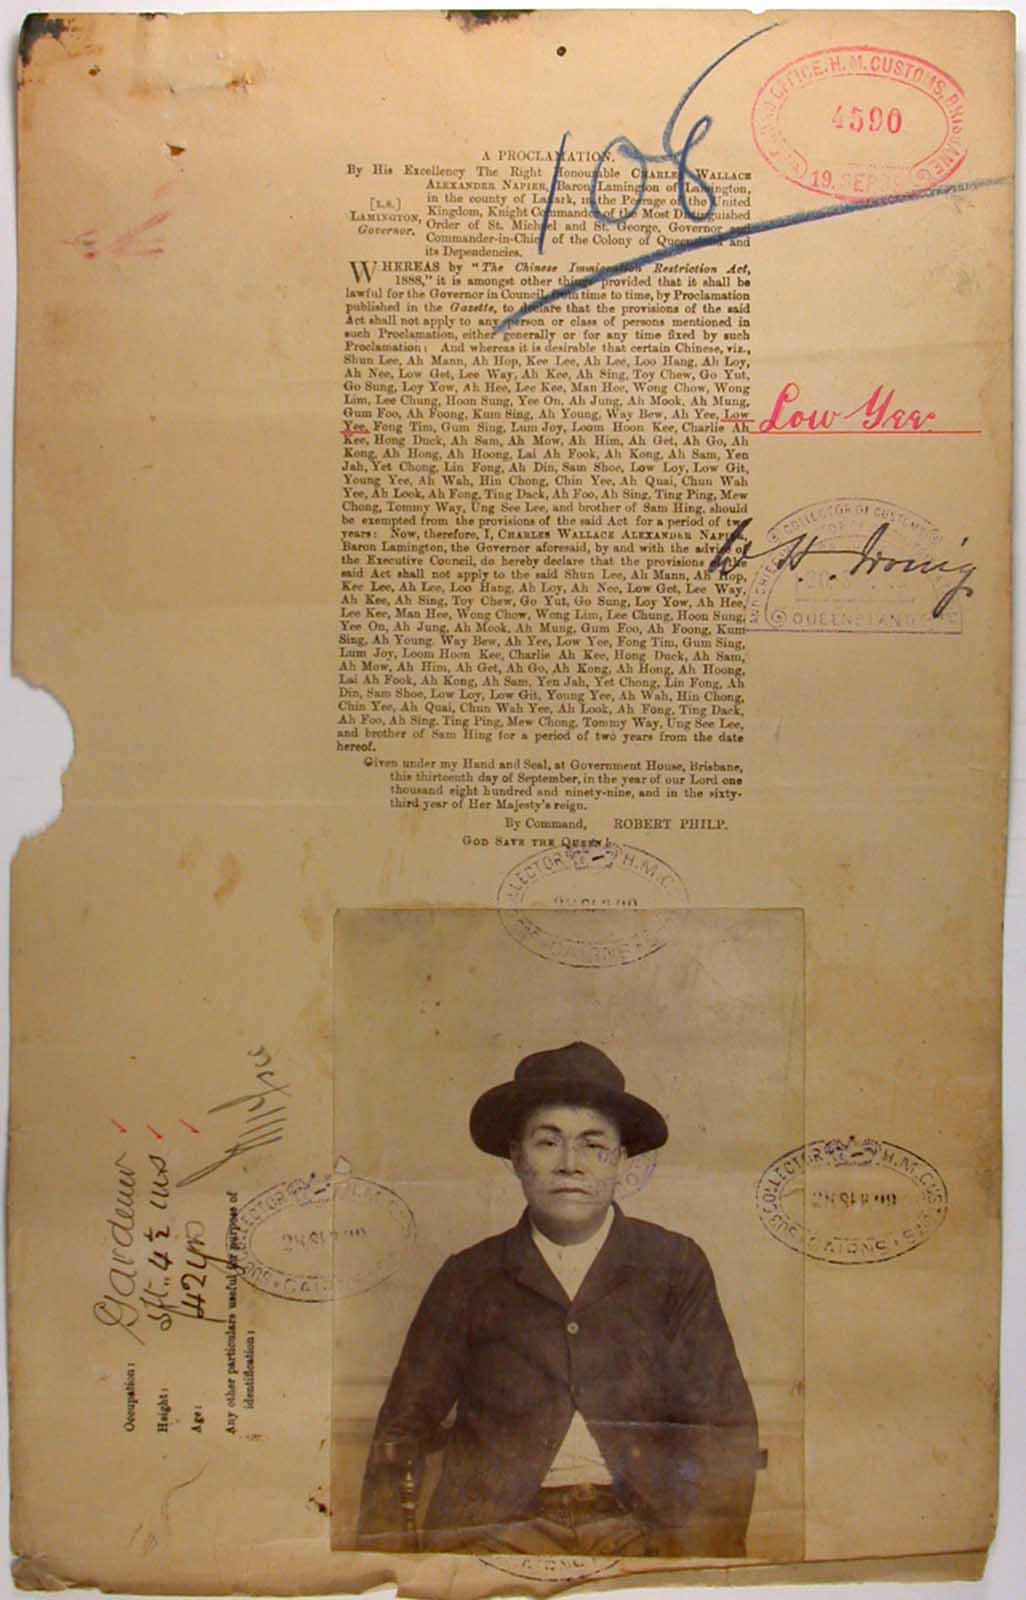 CHIEF OFFICE. H. M. CUSTOMS. BRISBANE
4590
19. SEP
108
A PROCLAMATION.
By His Excellency The Right Honourable CHARLES WALLACE
ALEXANDER NAPIER, Baron Lamington of Lamington,
in the county of Lanark, in the Peerage of the United
Kingdom, Knight Commander of the Most Distinguished
Order of St. Michael and St. George, Governor and
Commander-in-Chief of the Colony of Queensland and
its Dependencies.
[L.S.]
LAMINGTON,
Governor.
WHEREAS by "The Chinese Immigration Restriction Act,
1888," it is amongst other things provided that it shall be
lawful for the Governor in Council, from time to time, by Proclamation
published in the Gazette, to declare that the provisions of the said
Act shall not apply to any person or class of persons mentioned in
such Proclamation, either generally or for any time fixed by such
Proclamation: And whereas it is desirable that certain Chinese, viz.,
Shun Lee, Ah Mann, Ah Hop, Kee Lee, Ah Lee, Loo Hang, Ah Loy,
Ah Nee, Low Get, Lee Way, Ah Kee, Ah Sing, Toy Chew, Go Yut,
Go Sung, Loy Yow, Ah Hee, Lee Kee, Man Hee, Wong Chow, Wong
Lim, Lee Chung, Hoon Sung, Yee On, Ah Jung, Ah Mook, Ah Mung,
Gum Foo, Ah Foong, Kum Sing, Ah Young, Way Bew, Ah Yee, Low
Yee, Fong Tim, Gum Sing, Lum Joy, Loom Hoon Kee, Charlie Ah
Kee, Hong Duck, Ah Sam, Ah Mow, Ah Him, Ah Get, Ah Go, Ah
Kong, Ah Hong, Ah Hoong, Lai Ah Fook, Ah Kong, Ah Sam, Yen
Jah, Yet Chong, Lin Fong, Ah Din, Sam Shoe, Low Loy, Low Git,
Young Yee, Ah Wah, Hin Chong, Chin Yee, Ah Quai, Chun Wah
Yee, Ah Look, Ah Fong, Ting Dack, Ah Foo, Ah Sing, Ting Ping, Mew
Chong, Tommy Way, Ung See Lee, and brother of Sam Hing, should
be exempted from the provisions of the said Act for a period of two
years: Now, therefore, I, CHARLES WALLACE ALEXANDER NAPIER,
Baron Lamington, the Governor aforesaid, by and with the advice of
the Executive Council, do hereby declare that the provisions of the
said Act shall not apply to the said Shun Lee, Ah Mann, Ah Hop,
Kee Lee, Ah Lee, Loo Hang, Ah Loy, Ah Nee, Low Get, Lee Way,
Ah Kee, Ah Sing, Toy Chew, Go Yut, Go Sung, Loy Yow, Ah Hee,
Lee Kee, Man Hee, Wong Chow, Wong Lim, Lee Chung, Hoon Sung,
Yee On, Ah Jung, Ah Mook, Ah Mung, Gum Foo, Ah Foong, Kum
Sing, Ah Young, Way Bew, Ah Yee, Low Yee, Fong Tim, Gum Sing,
Lum Joy, Loom Hoon Kee, Charlie Ah Kee, Hong Duck, Ah Sam,
Ah Mow, Ah Him, Ah Get, Ah Go, Ah Kong, Ah Hong, Ah Hoong,
Lai Ah Fook, Ah Kong, Ah Sam, Yen Jah, Yet Chong, Lin Fong, Ah
Din, Sam Shoe, Low Loy, Low Git, Young Yee, Ah Wah, Hin Chong,
Chin Yee, Ah Quai, Chun Wah Yee, Ah Look, Ah Fong, Ting Dack,
Ah Foo, Ah Sing, Ting Ping, Mew Chong, Tommy Way, Ung See Lee,
and brother of Sam Hing for a period of two years from the date
hereof.
Given under my Hand and Seal, at Government House, Brisbane,
this thirteenth day of September, in the year of our Lord one
thousand eight hundred and ninety-nine, and in the sixty-
third year of Her Majesty's reign.
By Command, ROBERT PHILP.
GOD SAVE THE QUEEN!
Low Yee.
COLLECTOR OF CUSTOMS
QUEENSLAND
W. H. Irving
COLLECTOR H.M.C.
CAIRNS
COLLECTOR H.M. CUS
CAIRNS
COLLECTOR H.M.
CAIRNS
Occupation: Gardener
Height: 5ft.. 4½ ins
Age: 42 yrs
Any other particulars useful for purpose of
identification:
CAIRNS